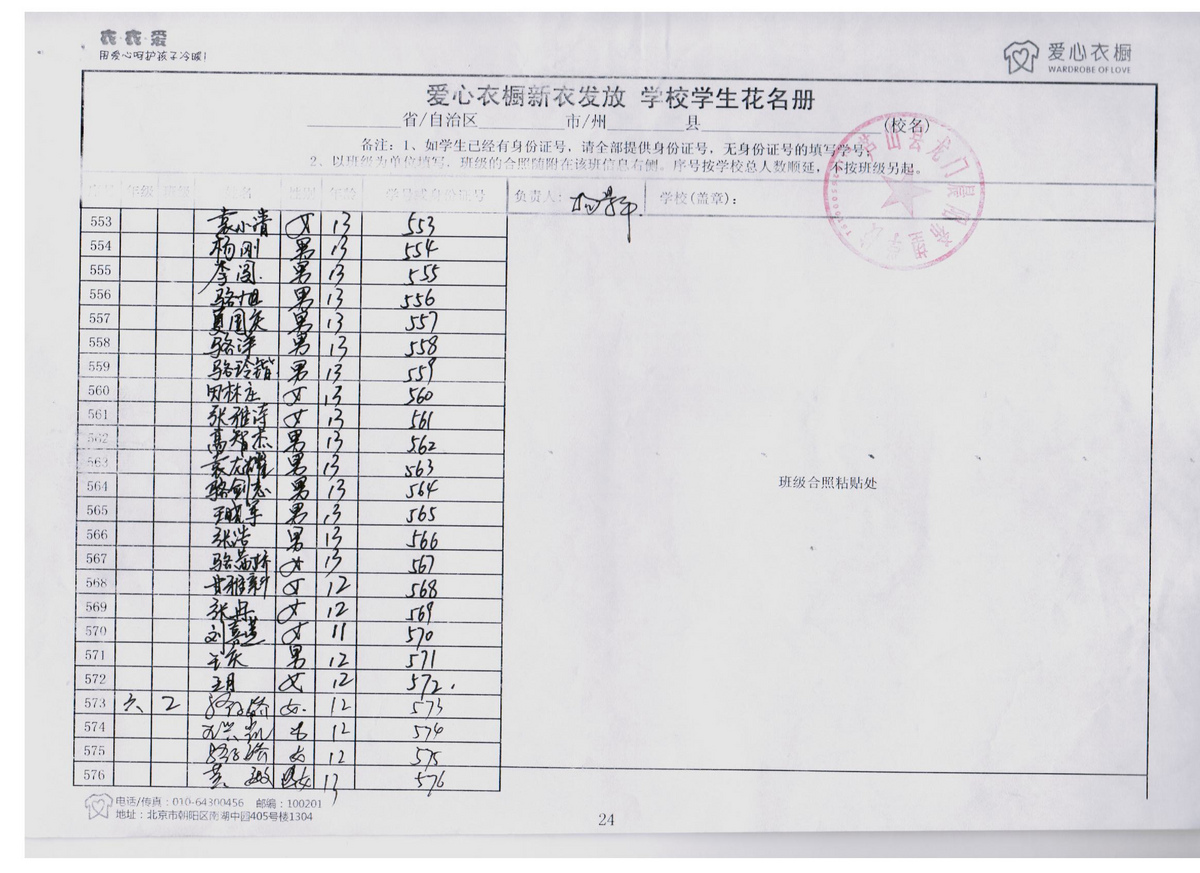 衣·衣·爱
用爱心呵护孩子冷暖!
爱心衣橱
WARDROBE OF LOVE
爱心衣橱新衣发放 学校学生花名册
省/自治区 市/州 县 (校名)
备注：1、如学生已经有身份证号，请全部提供身份证号，无身份证号的填写学号；
2、以班级为单位填写，班级的合照随附在该班信息右侧。序号按学校总人数顺延，不按班级另起。
序号 年级 班级 姓名 性别 年龄 学号或身份证号 负责人： 学校(盖章)：
553 袁小清 女 13 553
554 杨刚 男 13 554
555 李闯 男 13 555
556 骆旭 男 13 556
557 夏国庆 男 13 557
558 骆洋 男 13 558
559 骆玲锴 男 13 559
560 女 13 560
561 张雅涛 女 13 561
562 高智杰 男 13 562
563 袁志耀 男 13 563
564 骆剑志 男 13 564
565 王晓军 男 13 565
566 张浩 男 13 566
567 骆 娇 女 13 567
568 甘雅 女 12 568
569 张 女 12 569
570 刘 女 11 570
571 王庆 男 12 571
572 王月 女 12 572.
573 六 2 女 12 573
574 12 574
575 女 12 575
576 敏 女 13 576
班级合照粘贴处
电话/传真：010-64300456 邮编：100201
地址：北京市朝阳区南湖中园405号楼1304
24